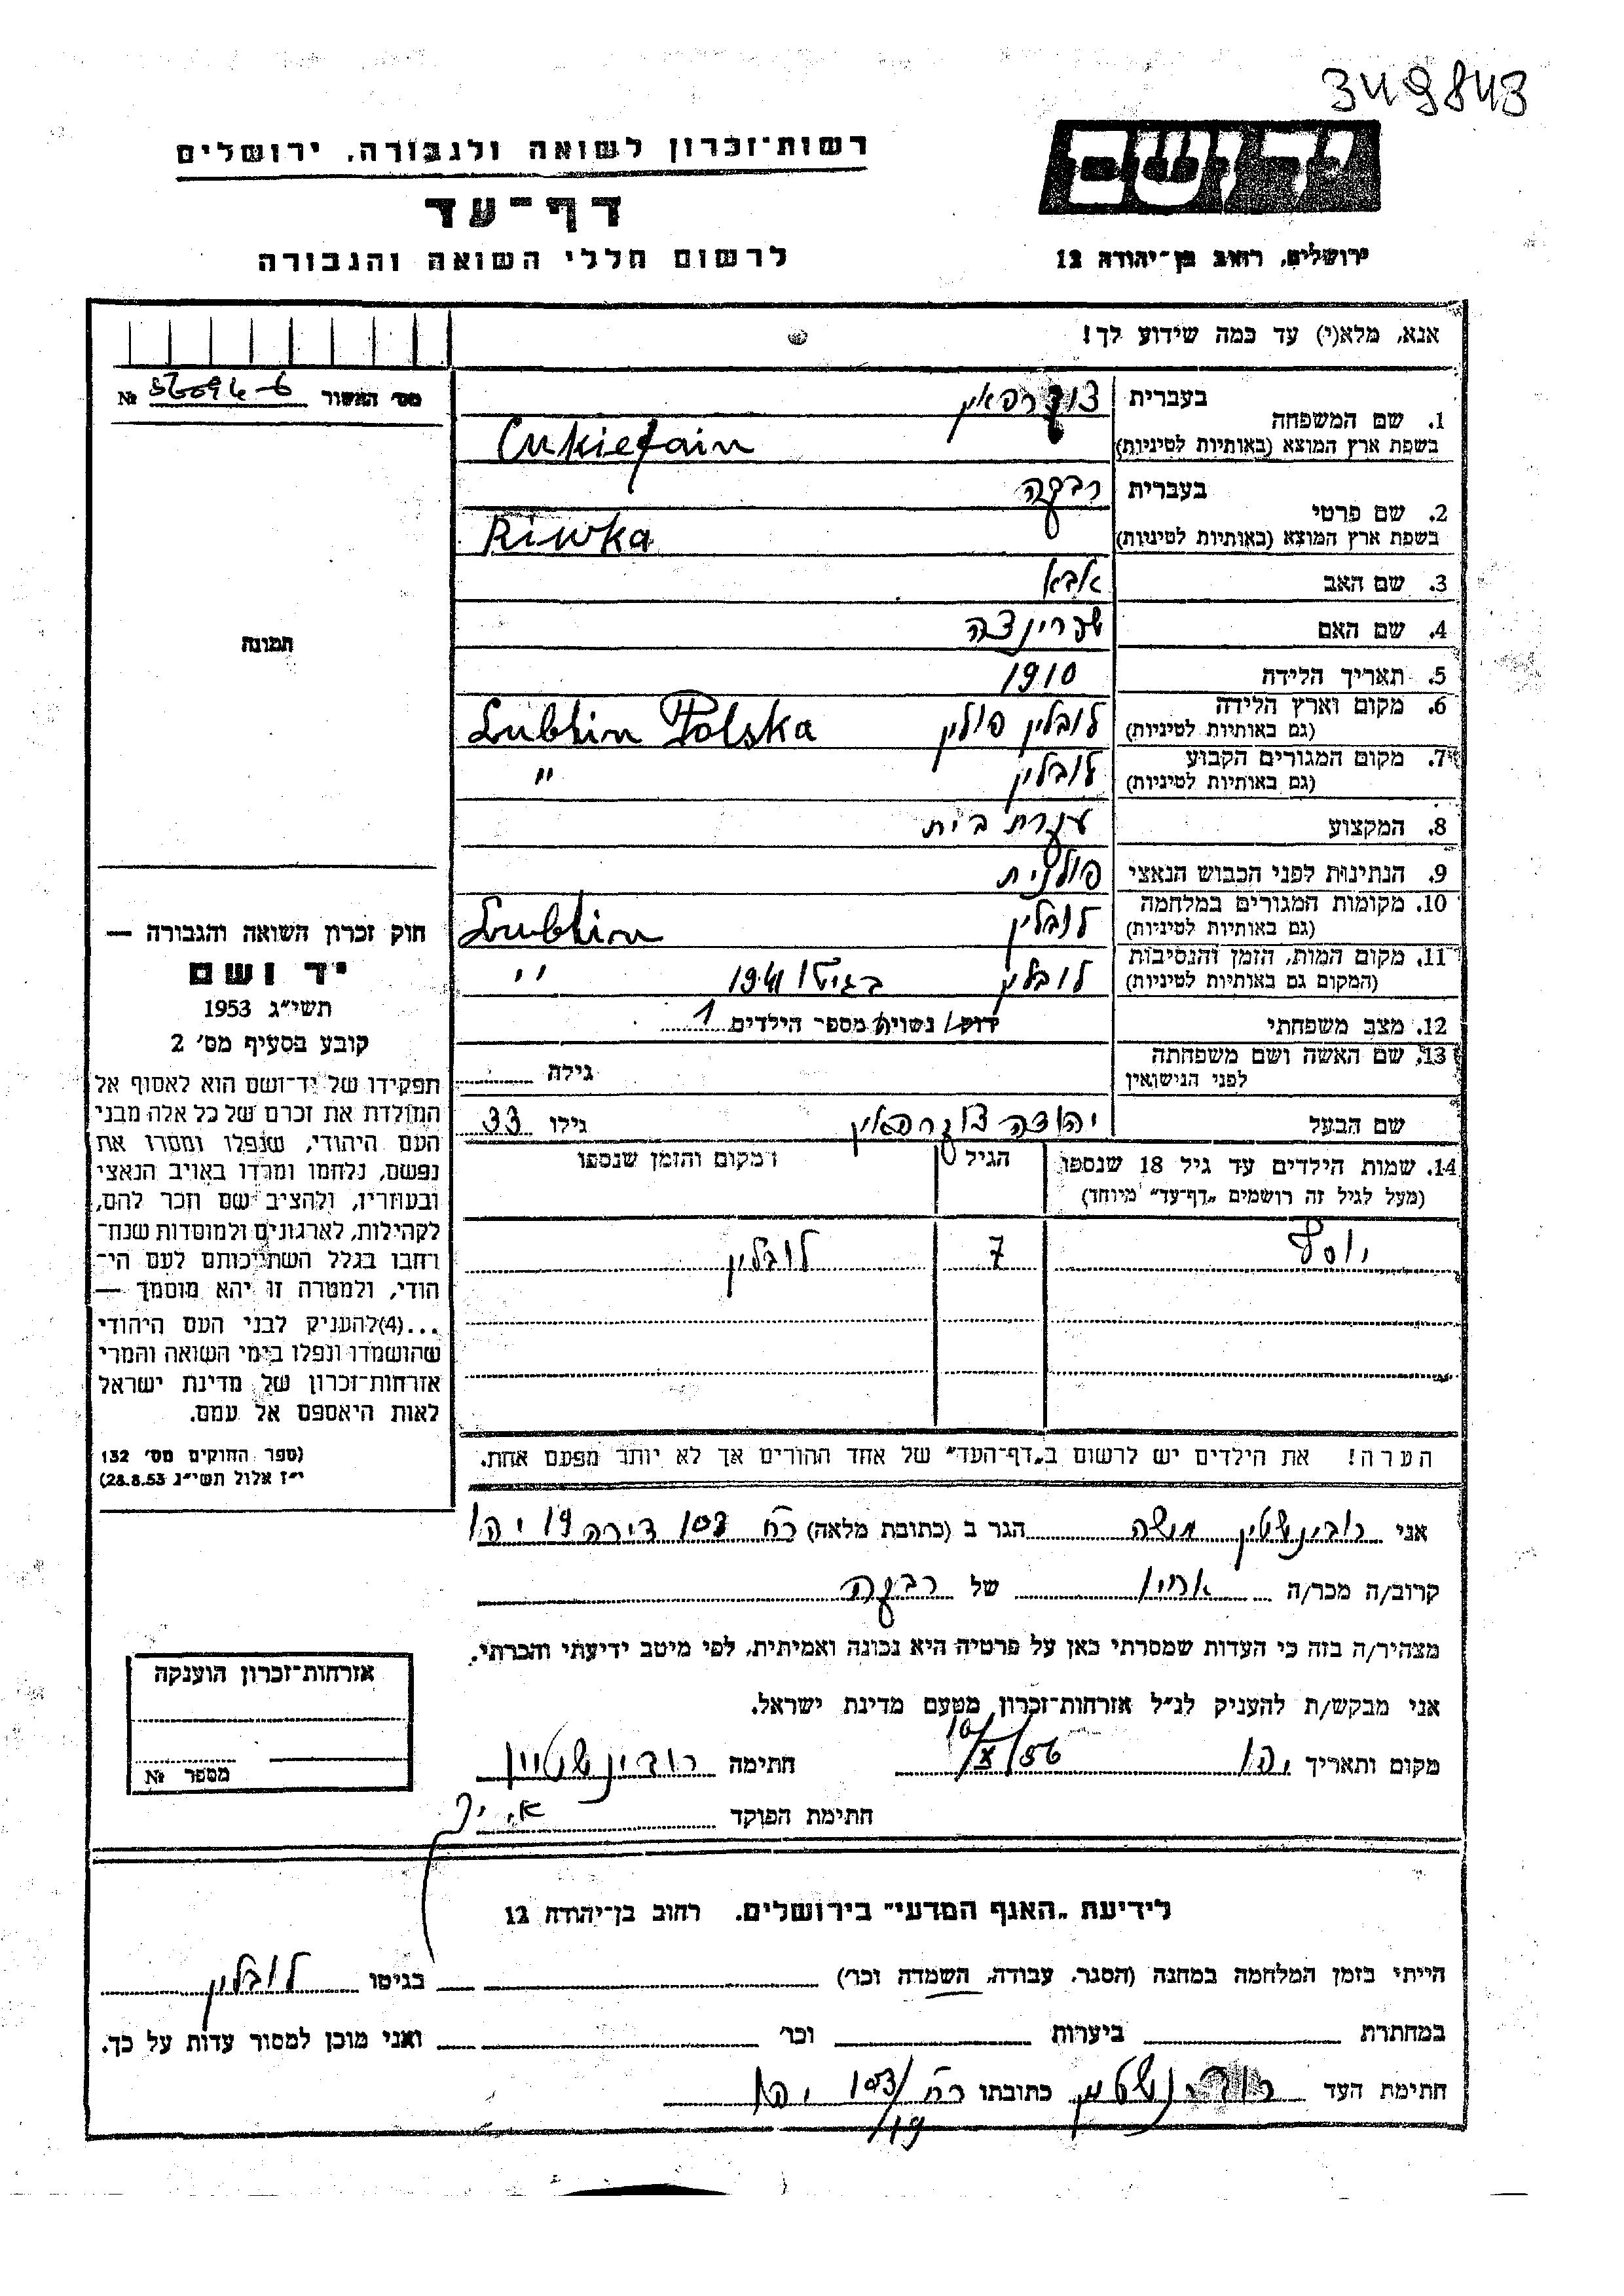 349843
יד ושם
רשות־זכרון לשואה ולגבורה, ירושלים
דף־עד
לרשום חללי השואה והגבורה
ירושלים, רחוב בן־יהודה 12
אנא, מלא(י) עד כמה שידוע לך!
מס׳ האשור №
1. שם המשפחה
בעברית צוקרפאין
בשפת ארץ המוצא (באותיות לטיניות) Cukiefain
2. שם פרטי
בעברית רבקה
בשפת ארץ המוצא (באותיות לטיניות) Riwka
3. שם האב אבא
4. שם האם שפרינצה
5. תאריך הלידה 1910
6. מקום וארץ הלידה (גם באותיות לטיניות) לובלין פולין Lublin Polska
7. מקום המגורים הקבוע (גם באותיות לטיניות) לובלין "
8. המקצוע עקרת בית
9. הנתינות לפני הכבוש הנאצי פולנית
10. מקומות המגורים במלחמה (גם באותיות לטיניות) לובלין Lublin
11. מקום המות, הזמן והנסיבות (המקום גם באותיות לטיניות) לובלין בגיטו 1941 "
12. מצב משפחתי רווק/ נשוי/ מספר הילדים 1
13. שם האשה ושם משפחתה לפני הנישואין גילה
שם הבעל יהודה צוקרפאין גילו 33
14. שמות הילדים עד גיל 18 שנספו (מעל לגיל זה רושמים „דף־עד״ מיוחד) הגיל המקום והזמן שנספו
יוסף 7 לובלין
הערה! את הילדים יש לרשום ב„דף־העד״ של אחד ההורים אך לא יותר מפעם אחת.
תמונה
חוק זכרון השואה והגבורה —
יד ושם
תשי״ג 1953
קובע בסעיף מס׳ 2
תפקידו של יד־ושם הוא לאסוף אל
המולדת את זכרם של כל אלה מבני
העם היהודי, שנפלו ומסרו את
נפשם, נלחמו ומרדו באויב הנאצי
ובעוזריו, ולהציב שם וזכר להם,
לקהילות, לארגונים ולמוסדות שנח־
רחבו בגלל השתייכותם לעם הי־
הודי, ולמטרה זו יהא מוסמך —
...(4)להעניק לבני העם היהודי
שהושמדו ונפלו בימי השואה והמרי
אזרחות־זכרון של מדינת ישראל
לאות היאספם אל עמם.
(ספר החוקים מס׳ 132
י״ז אלול תשי״ג 28.8.53)
אני רובינשטיין משה הגר ב (כתובת מלאה) רח 103 דירה 19 יפו
קרוב/ה מכר/ה אחיו של רבקה
מצהיר/ה בזה כי העדות שמסרתי כאן על פרטיה היא נכונה ואמיתית, לפי מיטב ידיעתי והכרתי.
אני מבקש/ת להעניק לנ״ל אזרחות־זכרון מטעם מדינת ישראל.
מקום ותאריך יפו 10/X/56 חתימה רובינשטיין
חתימת הפוקד
אזרחות־זכרון הוענקה
מספר №
לידיעת „האגף המדעי״ בירושלים, רחוב בן־יהודה 12
הייתי בזמן המלחמה במחנה (הסגר, עבודה, השמדה וכו׳) בגיטו לובלין
במחתרת ביערות וכו׳ ואני מוכן למסור עדות על כך.
חתימת העד רובינשטיין כתובתו רח 103/19 יפו